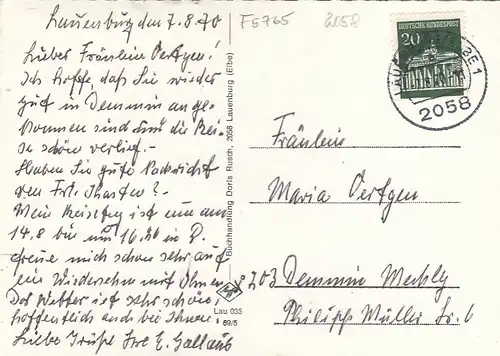 Lauenburg den 7.8.70
Liebes Fräulein Oertgen!
Ich hoffe, daß Sie wieder
gut in Demmin ange-
kommen sind und die Rei-
se schön verlief.-
Haben Sie gute Nachricht
von Frl. ?-
Mein Reisetag ist nun am
14.8 bin um 16. in
freue mich schon sehr auf
ein Wiedersehn mit Ihnen
Das Wetter ist sehr schön,
hoffentlich auch bei Ihnen.
Liebe Grüße Ihre E. Gallaus
F5765
2058
Buchhandlung Doris Rusch, 2058 Lauenburg (Elbe)
Lau 035
69/5
DEUTSCHE BUNDESPOST
20
2058
Fräulein
Maria Oertgen
203 Demmin Meckly
Philipp Müller Str. 6